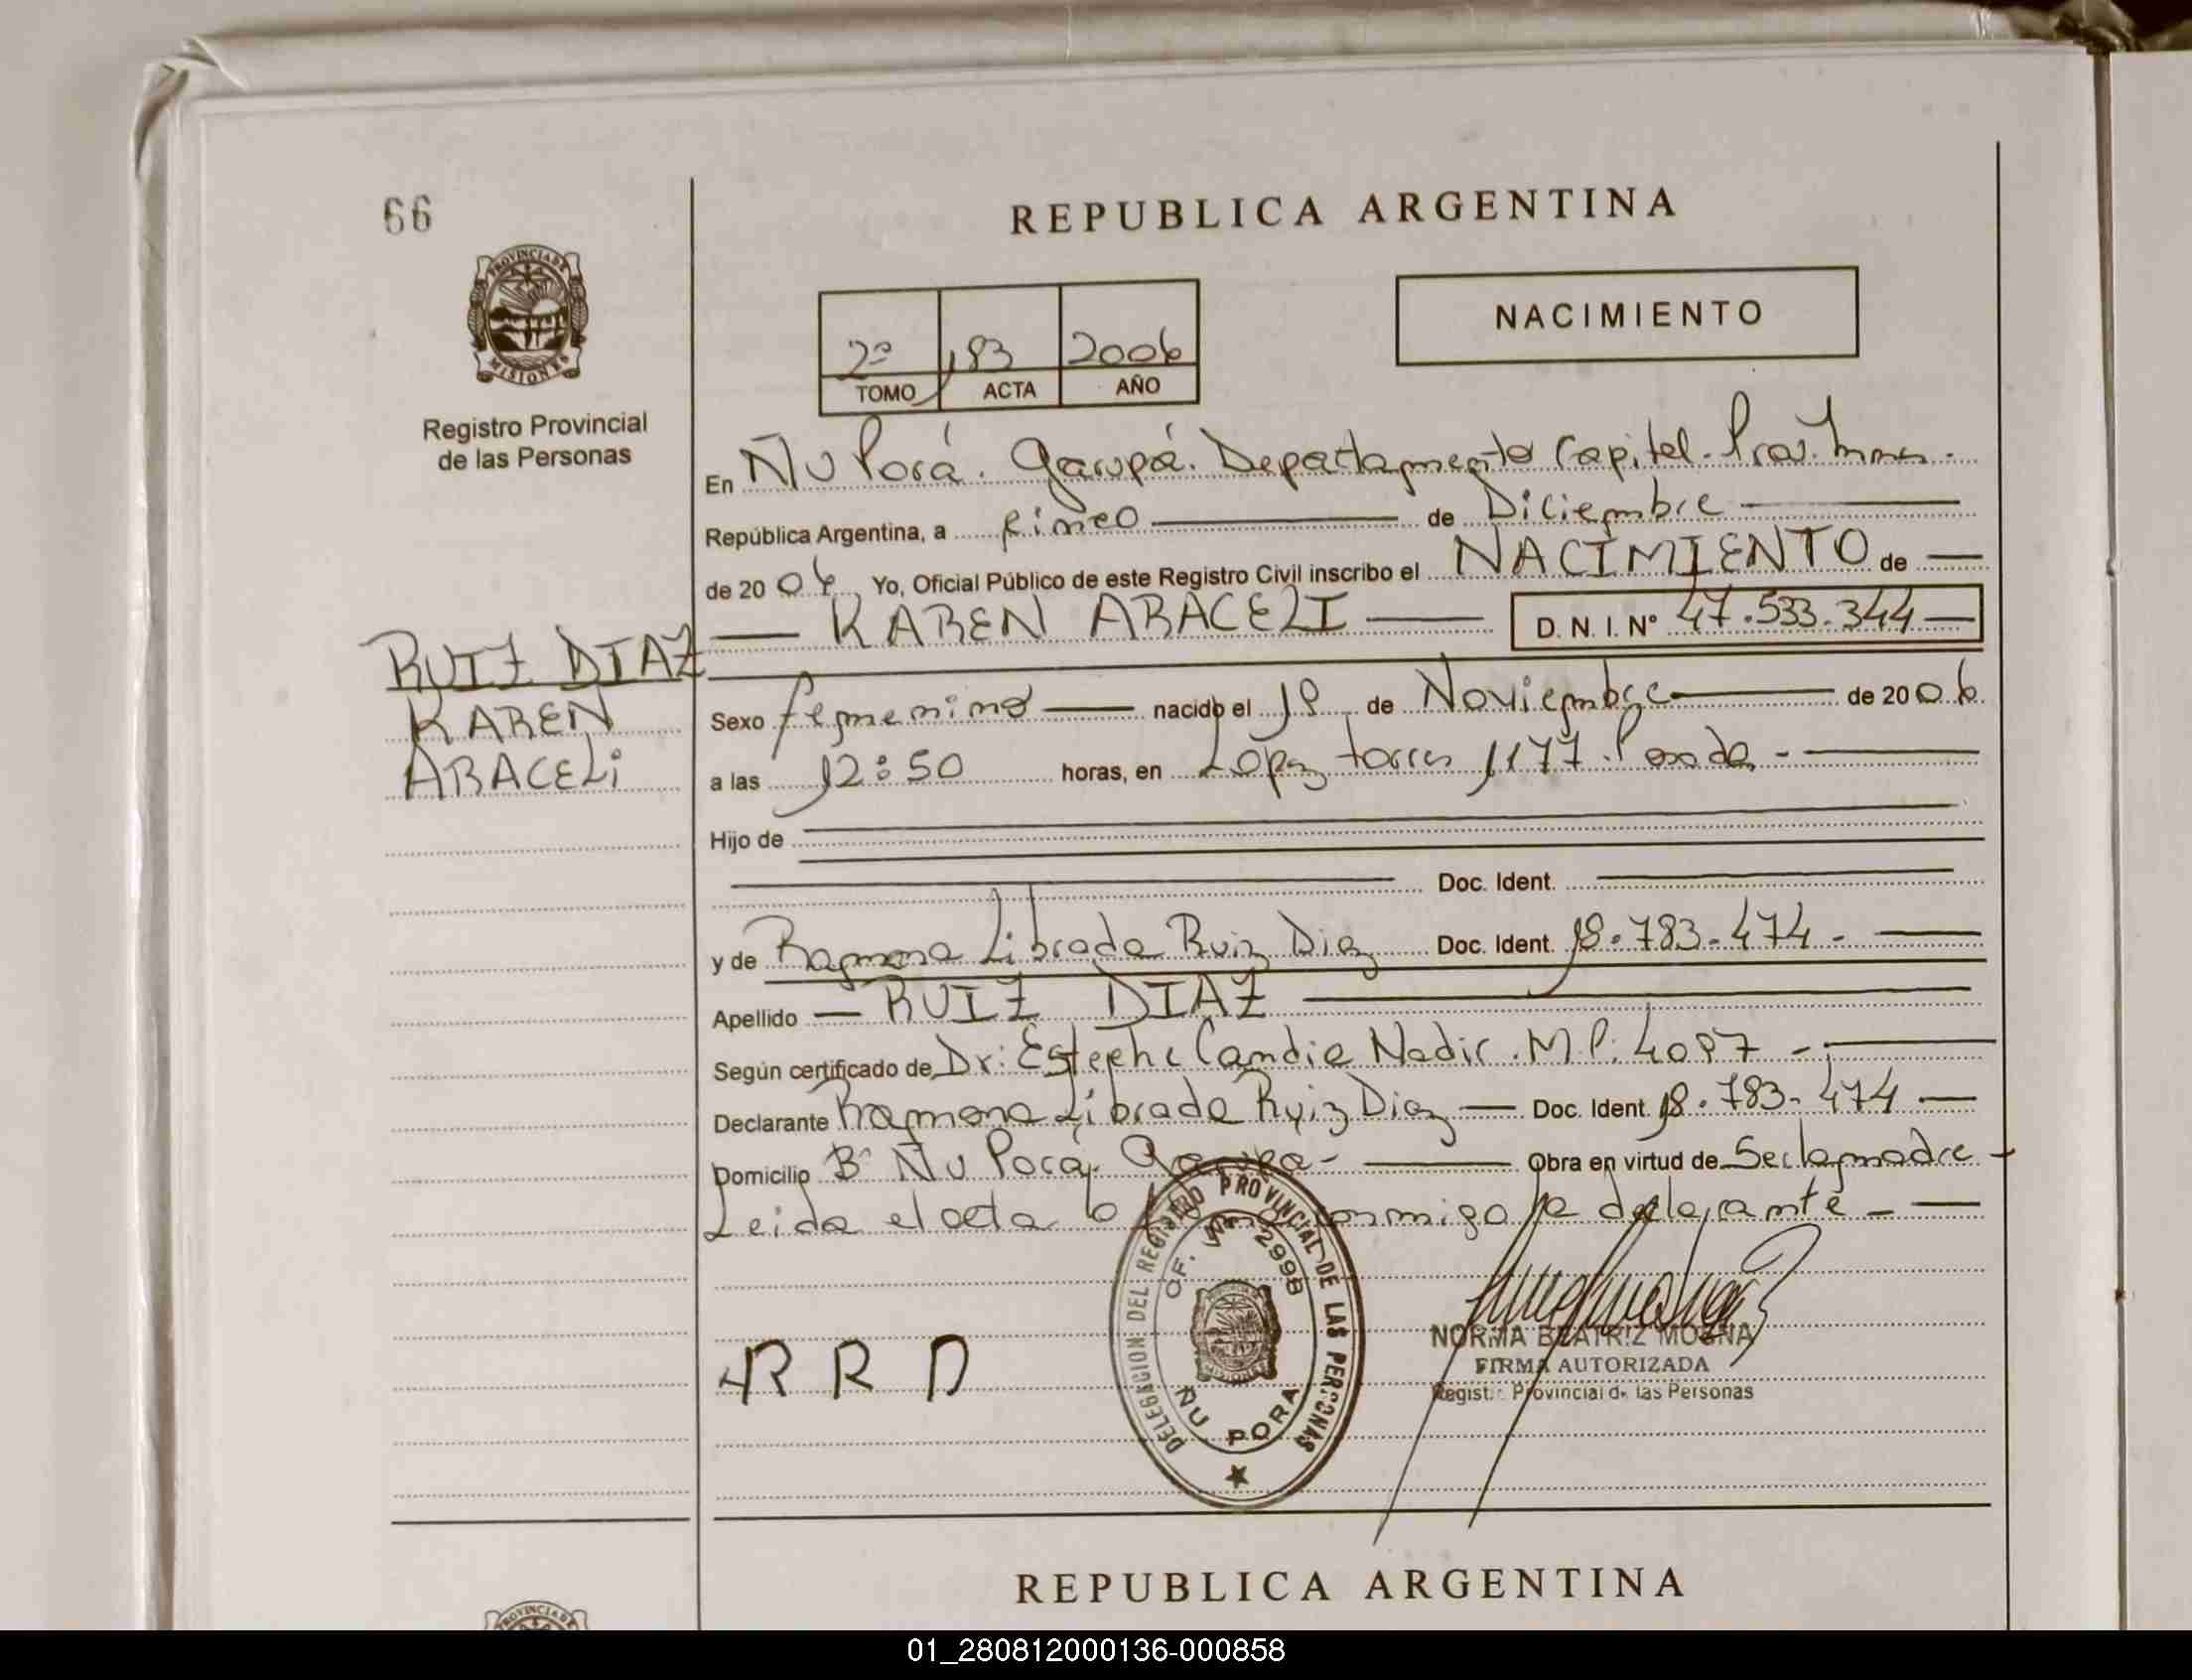 66
REPUBLICA ARGENTINA
PROVINCIA DE
MISIONES
Registro Provincial
de las Personas
2º 183 2006
TOMO ACTA AÑO
NACIMIENTO
En Ñu Porá. Garupá. Departamento Capital. Prov. Mnes.
República Argentina, a Cinco de Diciembre
de 2006 Yo, Oficial Público de este Registro Civil inscribo el NACIMIENTO de
KAREN ARACELI D. N. I. Nº 47.533.344
RUIZ DIAZ
KAREN
ARACELi
Sexo femenino nacido el 18 de Noviembre de 2006.
a las 12:50 horas, en Lopez torres 1177. Posadas -
Hijo de
Doc. Ident.
y de Ramona Librada Ruiz Diaz Doc. Ident. 18.783.474.-
Apellido RUIZ DIAZ
Según certificado de Dr: Esteche Candia Nadir. M.P. 4087 -
Declarante Ramona Librada Ruiz Diaz Doc. Ident. 18.783.474
Domicilio Bº Ñu Porá. Garupa- Obra en virtud de Ser la madre -
Leida el acta la firma conmigo la declarante -
R R D
DELEGACION DEL REGISTRO PROVINCIAL DE LAS PERSONAS
OF. 2998
ÑU PORA
NORMA BEATRIZ
FIRMA AUTORIZADA
Regist. Provincial de las Personas
REPUBLICA ARGENTINA
PROVINCIA DE
01_280812000136-000858